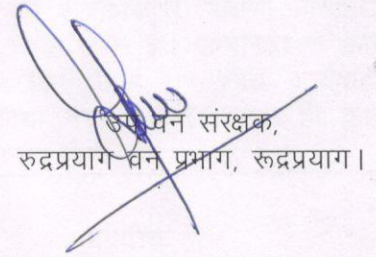 उप वन संरक्षक,
रुदप्रयाग वन प्रभाग, रूद्रप्रयाग।